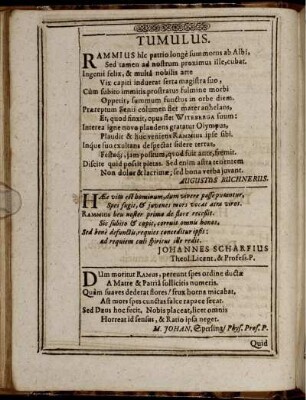 TUMULUS.
RAMMIUS hîc patrio longè summotus ab Albi,
Sed tamen ad nostrum proximus ille, cubat.
Ingenii felix, & multâ nobilis arte
Vix capiti induerat serta magistra suo,
Cùm subito immitis prostratus fulmine morbi
Oppetit, summum functus in orbe diem.
Præreptum Genii columen flet mater anhelans,
Et, quod sinxit, opus flet WITEBERGA suum:
Interea igne novo plaudens gratatur Olympus,
Plaudit & huc veniens RAMMIUS ipse sibi.
Inque suo exultans despectat sidere terras,
Festus; jam positum, quod fuit ante, sumit.
Discite quid possit pietas. Sed enim astra tenentem
Non dolor & lacrimæ; sed bona verba juvant.
AUGUSTUS BUCHNERUS.
Hæc vita est hominum, dum vivere posse putantur,
Spes fugit, & juvenes mors vocat atra viros.
RAMMIUS heu noster primo de flore recessit.
Sic subitò & capit, carpit omnia bonos.
Sed benè defunctis, requies conceditur ipsis:
ad requiem cœli spiritus ille redit.
JOHANNES SCHARFIUS
Theol. Licent. & Profess. P.
DUm moritur RAMIUS, pereunt spes ordine ductæ
A Matre & Patriâ sollicitis numeris.
Quàm suaves dederat flores! frux horna micabat,
Ast mors spes cunctas falce rapace secat.
Sed Deus hoc fecit, Nobis placeat, licet omnis
Horreat id sensus, & Ratio ipsa neget.
M. JOHAN. Sperling/ Phys. Prof. P.
Quid